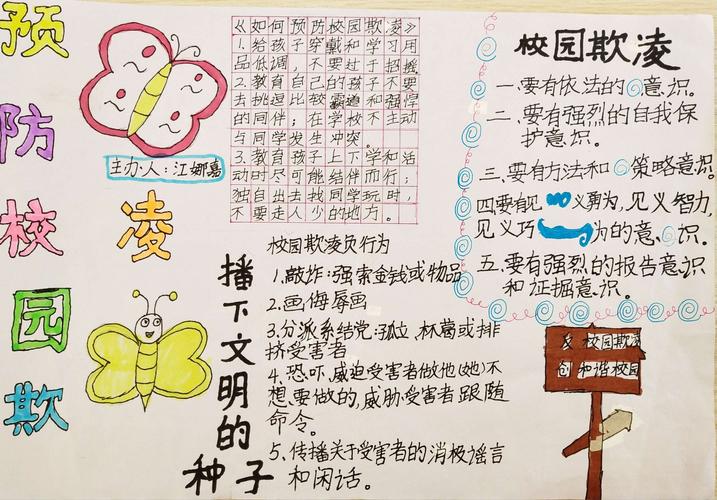 预防校园欺凌
主办人：江娜嘉
《如何预防校园欺凌》
1.给孩子穿戴和学习用
品低调，不要过于招摇
2.教育自己的孩子不要
去挑逗比较霸道和强悍
的同伴；在学校不主动
与同学发生冲突。
3.教育孩子上下学和活
动时尽可能结伴而行；
独自出去找同学玩时，
不要走人少的地方。
播下文明的种子
校园欺凌负行为
1.敲炸：强索金钱或物品
2.画侮辱画
3.分派系结党：孤立、或排
挤受害者
4.恐吓、威迫受害者做他(她)不
想要做的，威胁受害者跟随
命令。
5.传播关于受害者的消极谣言
和闲话。
校园欺凌
一.要有依法的意识。
二、要有强烈的自我保
护意识。
三.要有方法和策略意识。
四要有见义勇为，见义智力，
见义巧为的意识。
五.要有强烈的报告意识
和证掘意识。
反校园欺凌
创和谐校园